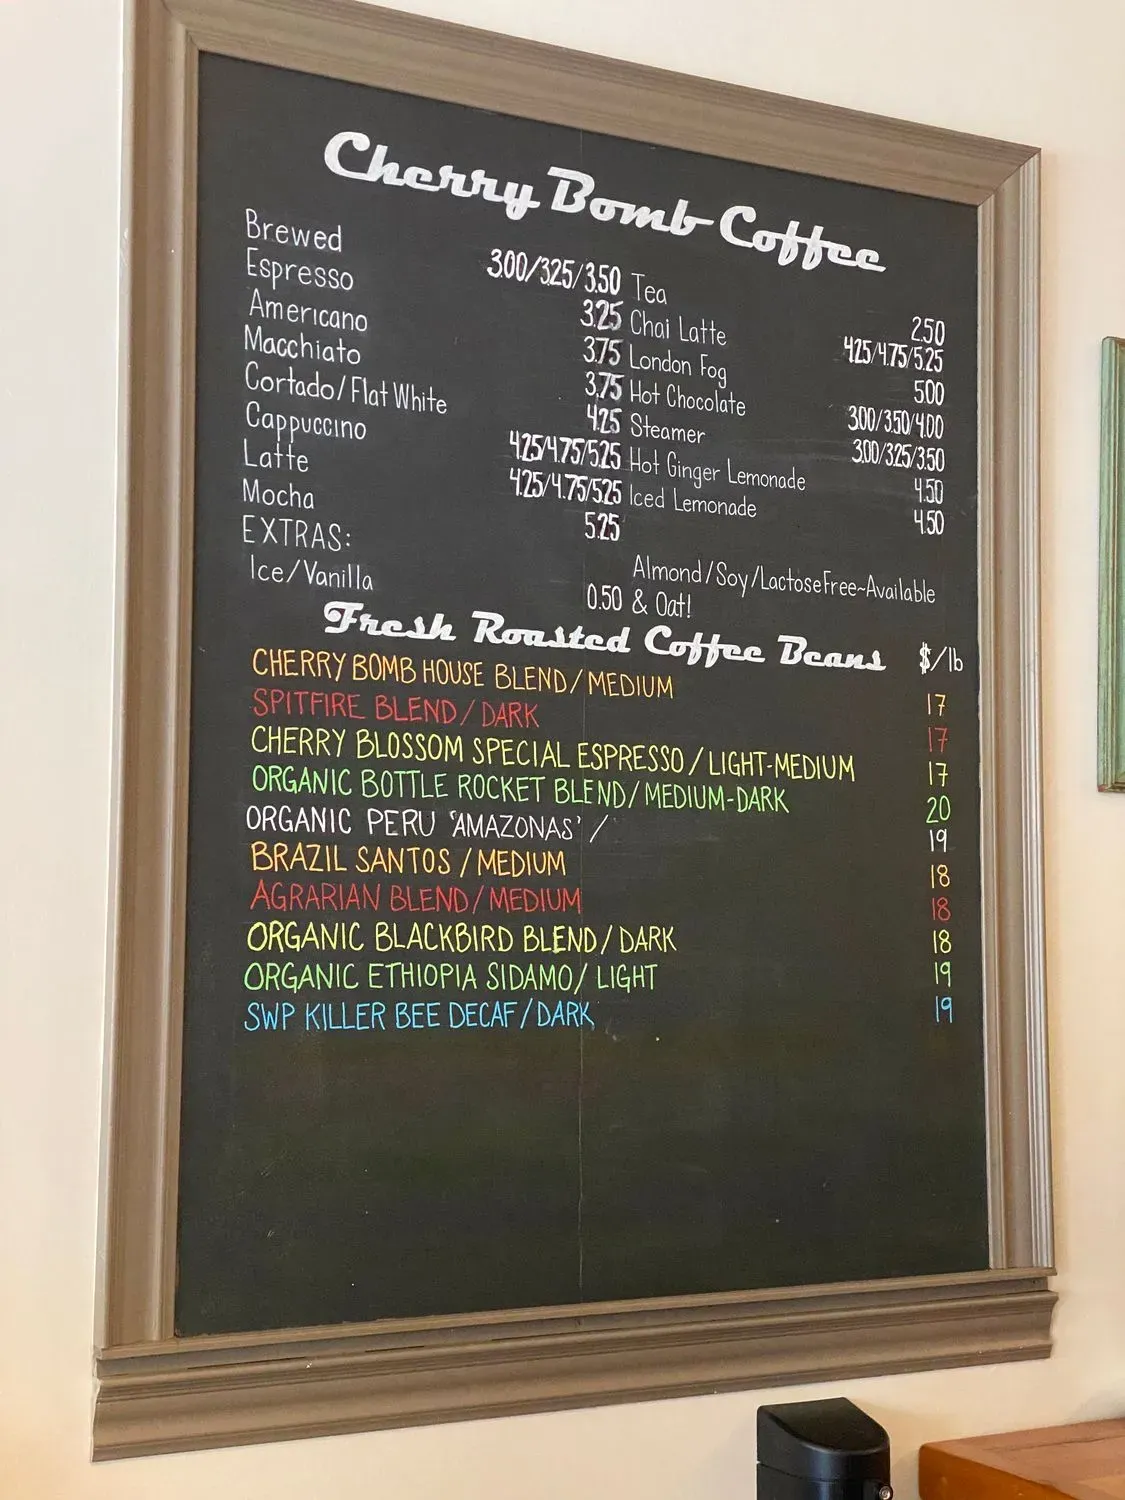 Cherry Bomb Coffee
Brewed 3.00/3.25/3.50
Espresso 3.25
Americano 3.75
Macchiato 3.75
Cortado/Flat White 4.25
Cappuccino 4.25/4.75/5.25
Latte 4.25/4.75/5.25
Mocha 5.25
EXTRAS:
Ice/Vanilla 0.50
Tea 2.50
Chai Latte 4.25/4.75/5.25
London Fog 5.00
Hot Chocolate 3.00/3.50/4.00
Steamer 3.00/3.25/3.50
Hot Ginger Lemonade 4.50
Iced Lemonade 4.50
Almond/Soy/LactoseFree~Available
& Oat!
Fresh Roasted Coffee Beans $/lb
CHERRY BOMB HOUSE BLEND/MEDIUM 17
SPITFIRE BLEND/DARK 17
CHERRY BLOSSOM SPECIAL ESPRESSO/LIGHT-MEDIUM 17
ORGANIC BOTTLE ROCKET BLEND/MEDIUM-DARK 20
ORGANIC PERU 'AMAZONAS' / 19
BRAZIL SANTOS/MEDIUM 18
AGRARIAN BLEND/MEDIUM 18
ORGANIC BLACKBIRD BLEND/DARK 18
ORGANIC ETHIOPIA SIDAMO/LIGHT 19
SWP KILLER BEE DECAF/DARK 19